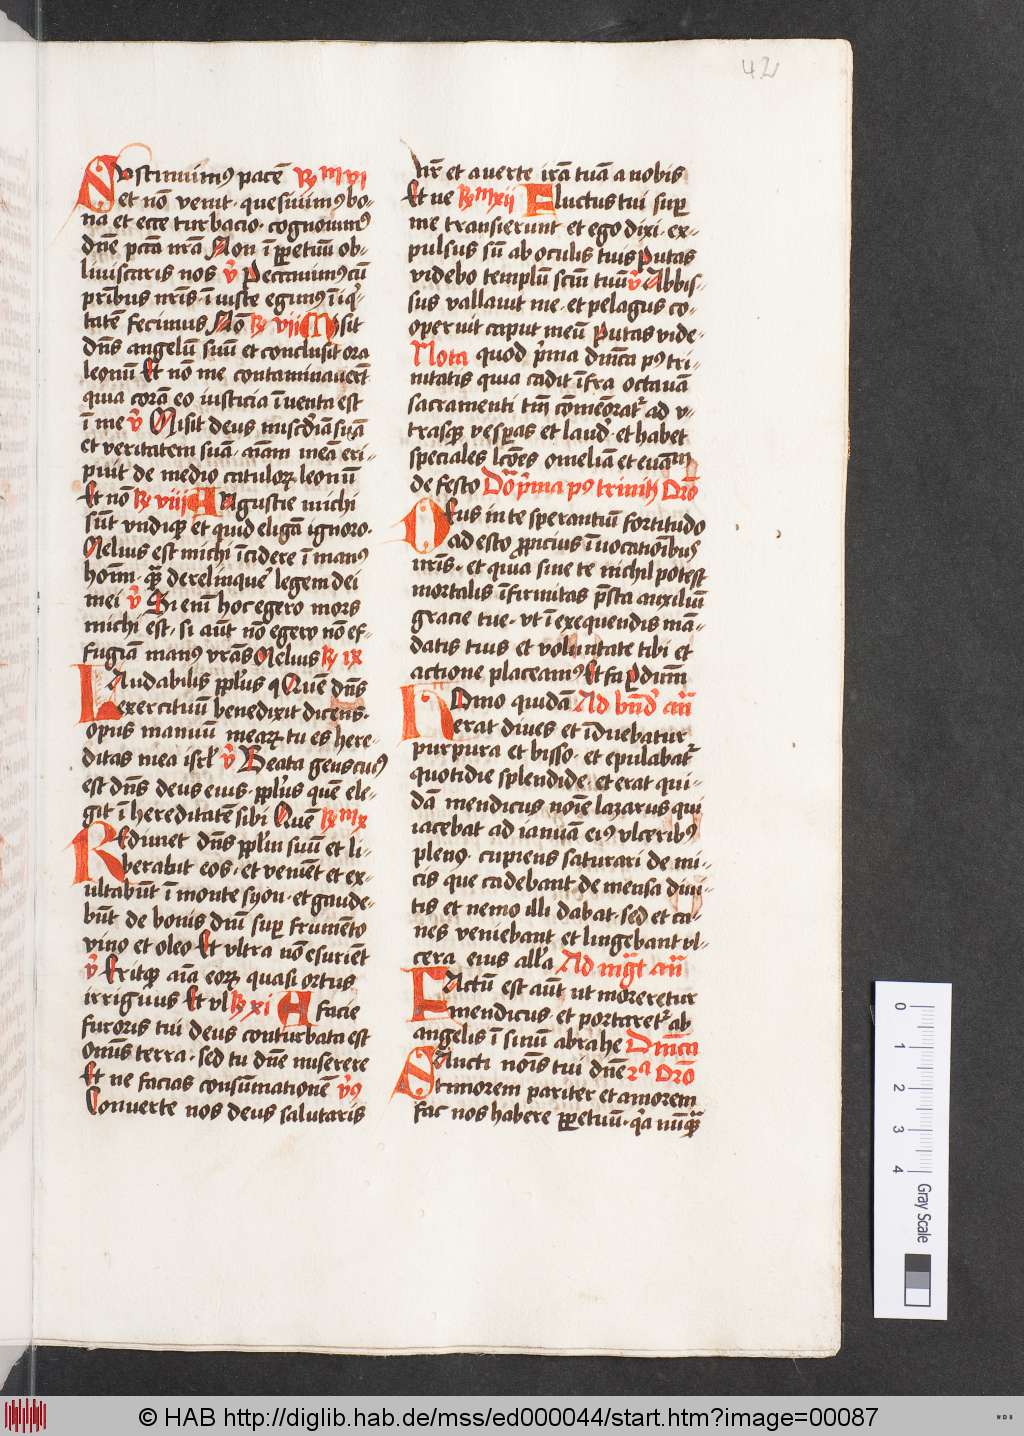 42
Sustinuimꝰ pacē Rꝫ m vi
et nō venit · quesiuimꝰ bo-
na et ecce turbacio · cognouimꝰ
dn̄e pctā nr̄a Non ī ꝑpetuū ob-
liuiscaris nos v̄ Peccauimꝰ cū
prībus nrīs · ī iuste egimꝰ īiqͥ-
tatē fecimus Nō Rꝫ vii Misit
dn̄s angelū suū et conclusit ora
leonū Et nō me contaminauerūt
quia corā eo iusticia īuenta est
ī me v̄ Misit deus mīscdiā suā
et veritatem suā · aīam meā eri-
puit de medio catuloꝝ leonū
Et nō Rꝫ viii Angustie michi
sūt vndiqꝫ et quid eligā ignoro ·
Melius est michi īcidere ī manꝰ
hoīm · qͣꝫ derelinquē legem dei
mei v̄ Si enī hoc egero mors
michi est · si aūt nō egero nō ef-
fugiā manꝰ vrās Melius Rꝫ ix
Laudabilis ppl̄us qͥ Quē dn̄s
exercituū benedixit dicens ·
opus manuū meaꝝ tu es here-
ditas mea isrl̄ v̄ Beata gens cuiꝰ
est dn̄s deus eius · ppl̄us quē ele-
git ī hereditatē sibi Quē Rꝫ m x
Redimet dn̄s ppl̄m suū et li-
berabit eos · et veniēt et ex-
ultabūt ī monte syon · et gaude-
būt de bonis dn̄i suꝑ frumēto
vino et oleo Et vltra nō esuriēt
v̄ Eritqꝫ aīa eoꝝ quasi ortus
irriguus Et vl Rꝫ xi A facie
furoris tui deus conturbata est
omīs terra · sed tu dn̄e miserere
Et ne facias consūmationē v̄ꝰ
Conuerte nos deus salutaris
nr̄ et auerte irā tuā a nobis
Et ne Rꝫ m xii Fluctus tui suꝑ
me transierunt et ego dixi · ex-
pulsus sū ab oculis tuis Putas
videbo templū scm̄ tuū v̄ Abbis-
sus vallauit me · et pelagus co-
operuit caput meū Putas vide-
Nota quod pͥma dn̄ica pꝰ tri-
nitatis quia cadit īfra octauā
sacramenti tm̄ cōmēorat̄ ad v-
trasqꝫ vesꝑas et laud̄ · et habet
speciales lcōes omeliā et euāᵐ
de festo Dō pͥma pꝰ trinit̄ Orō
Deus in te sperantiū fortitudo
adesto ꝓpicius īuocationībus
nrīs · et quia sine te nichil potest
mortalis īfirmitas p̄sta auxiliū
gracie tue · vt ī exequendis mā-
datis tuis et voluntate tibi et
actione placeamꝰ Et fa Per dn̄m
Homo quidā Ad bn̄d an̄
erat diues et īduebatur
purpura et bisso · et epulabat̄
quotidie splendide · et erat qui-
dā mendicus noīe lazarus qui
iacebat ad ianuā eiꝰ vlceribꝰ
plenꝰ · cupiens saturari de mi-
cis que cadebant de mensa diui-
tis et nemo illi dabat · sed et ca-
nes veniebant et lingebant vl-
cera eius all̄a Ad mḡt an̄
Factū est aūt ut moreretur
mendicus · et portaret̄ ab
angelis ī sinū abrahe Dn̄ica
Sancti noīs tui dn̄e 2ª Orō
timorem pariter et amorem
fac nos habere ꝑpetuū · qͥa nūqͣꝫ
0 1 2 3 4 Gray Scale
© HAB http://diglib.hab.de/mss/ed000044/start.htm?image=00087